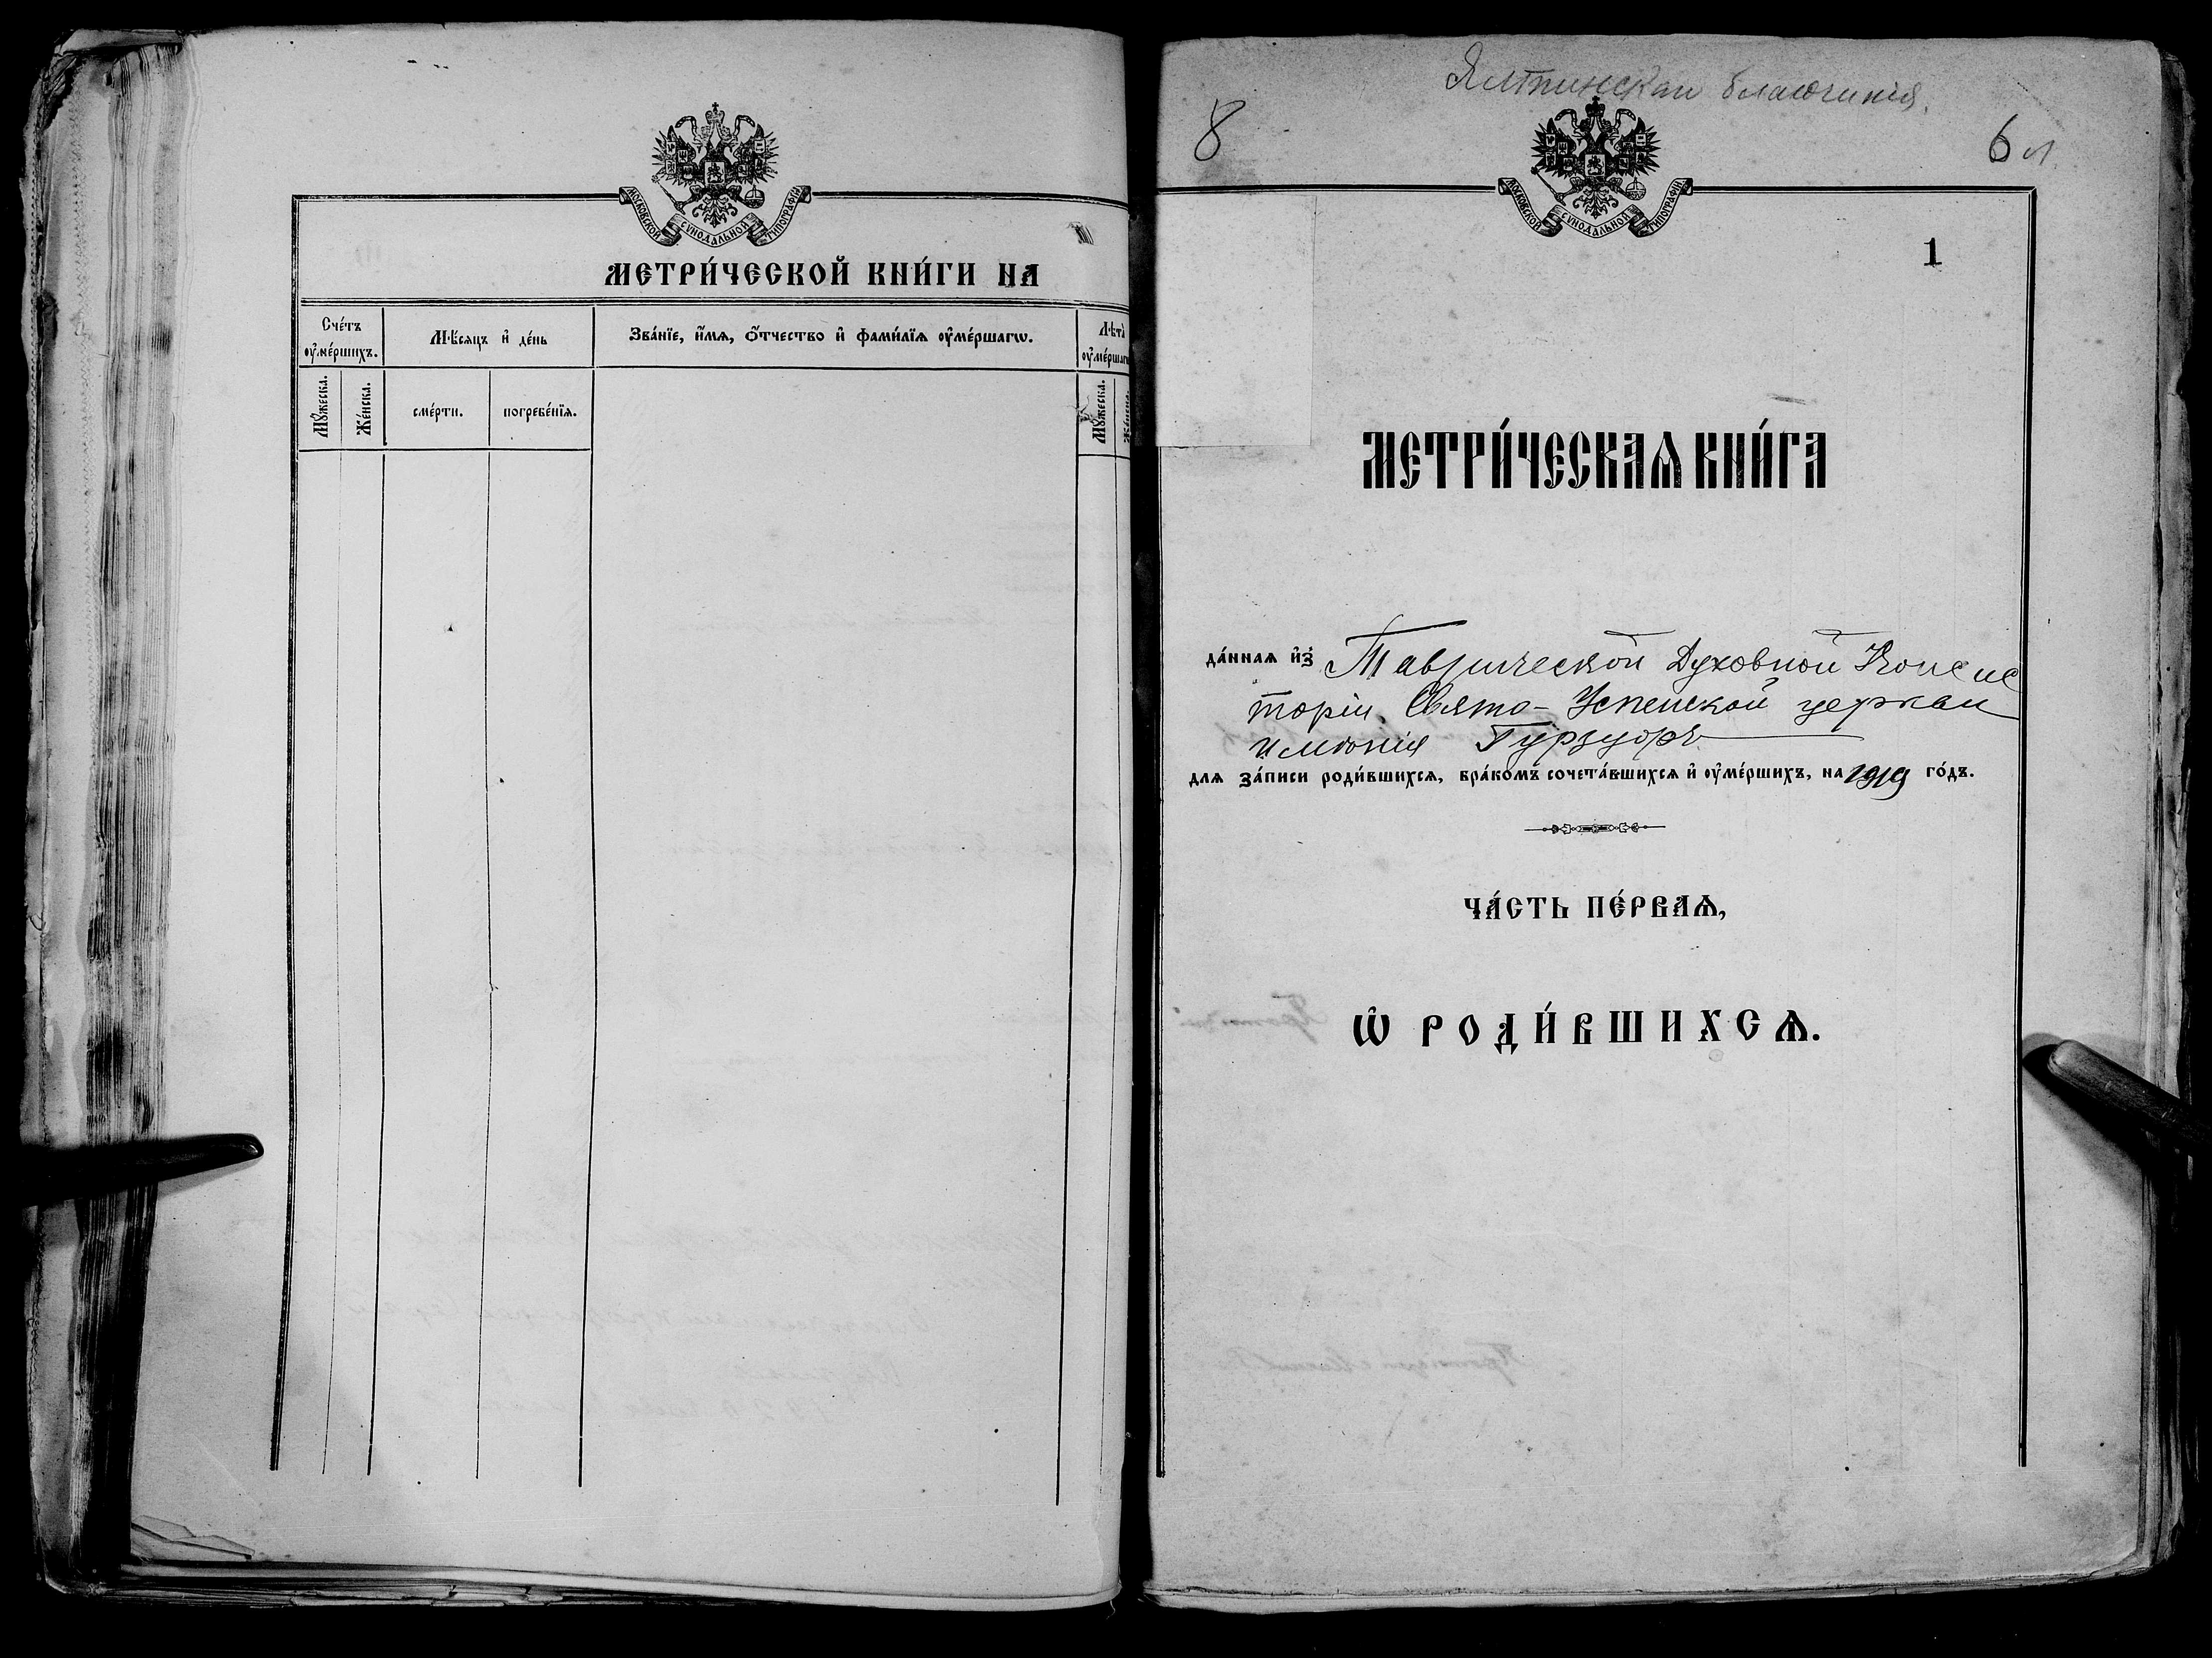 МОСКОВСКОЙ СѴНОДАЛЬНОЙ ТИПОГРАФІИ
МЕТРИ́ЧЕСКОЙ КНИ́ГИ НА
Сче́тъ ᲂу҆ме́ршихъ.
Мѣ́сяцъ и҆ де́нь
Зва́нїе, и҆́мѧ, ѻ҆́тчество и҆ фами́лїѧ ᲂу҆ме́ршагѡ.
Лѣ́та ᲂу҆ме́ршагѡ
Мꙋ́жеска.
Же́нска.
сме́рти.
погребе́нїѧ.
Мꙋ́жеска.
Же́нска.
Ялтинскаи благочинія.
8
6 л
МОСКОВСКОЙ СѴНОДАЛЬНОЙ ТИПОГРАФІИ
1
МЕТРИ́ЧЕСКАѦ КНИ́ГА
да́ннаѧ и҆з̾ Таврической Духовной Консис
торіи, Свято-Успенской церкви
имѣнія Гурзуфъ
длѧ за́писи роди́вшихсѧ, бра́комъ сочета́вшихсѧ и҆ ᲂу҆ме́ршихъ, на 1919 го́дъ.
ЧА́СТЬ ПЕ́РВАѦ,
Ѡ҆ РОДИ́ВШИХСѦ.